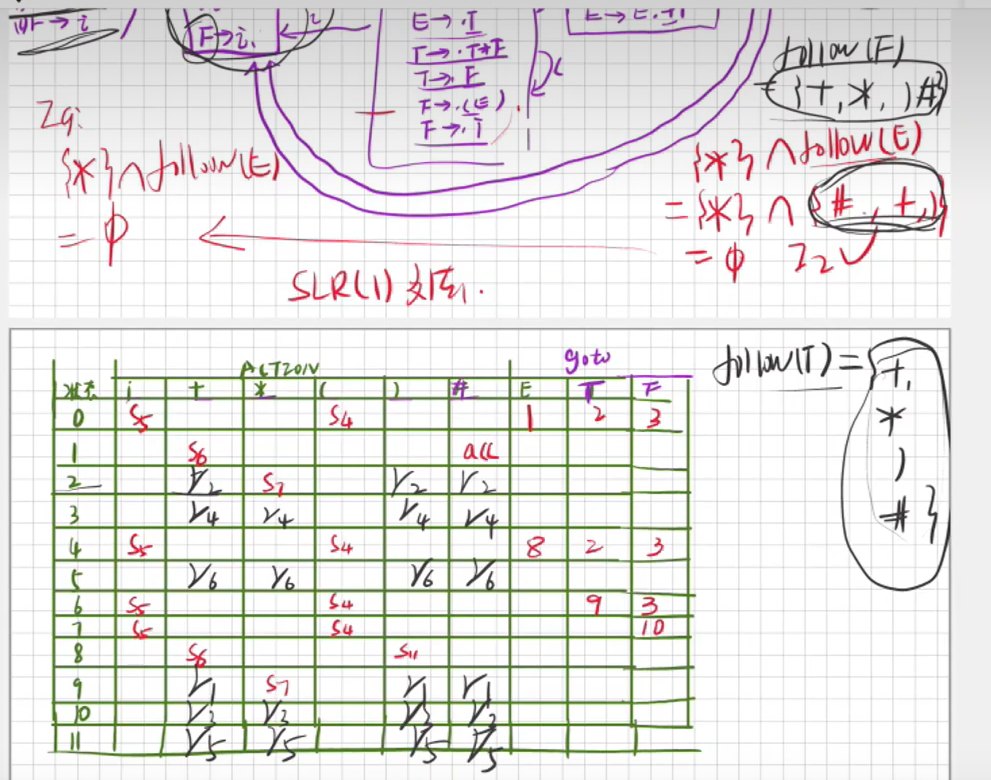 F→i
F→i.
E→.T
T→.T*F
T→.F
F→.(E)
F→.i
E→E.+T
follow(F)
={+,*,)#}
I9:
{*}∩follow(E)
=φ
{*}∩follow(E)
={*}∩{#,+,)}
=φ I2✓
SLR(1)文法.
ACTION goto
状态 i + * ( ) # E T F
0 S5 S4 1 2 3
1 S6 acc
2 r2 S7 r2 r2
3 r4 r4 r4 r4
4 S5 S4 8 2 3
5 r6 r6 r6 r6
6 S5 S4 9 3
7 S5 S4 10
8 S6 S11
9 r1 S7 r1 r1
10 r3 r3 r3 r3
11 r5 r5 r5 r5
follow(T)={+,
*
)
#}